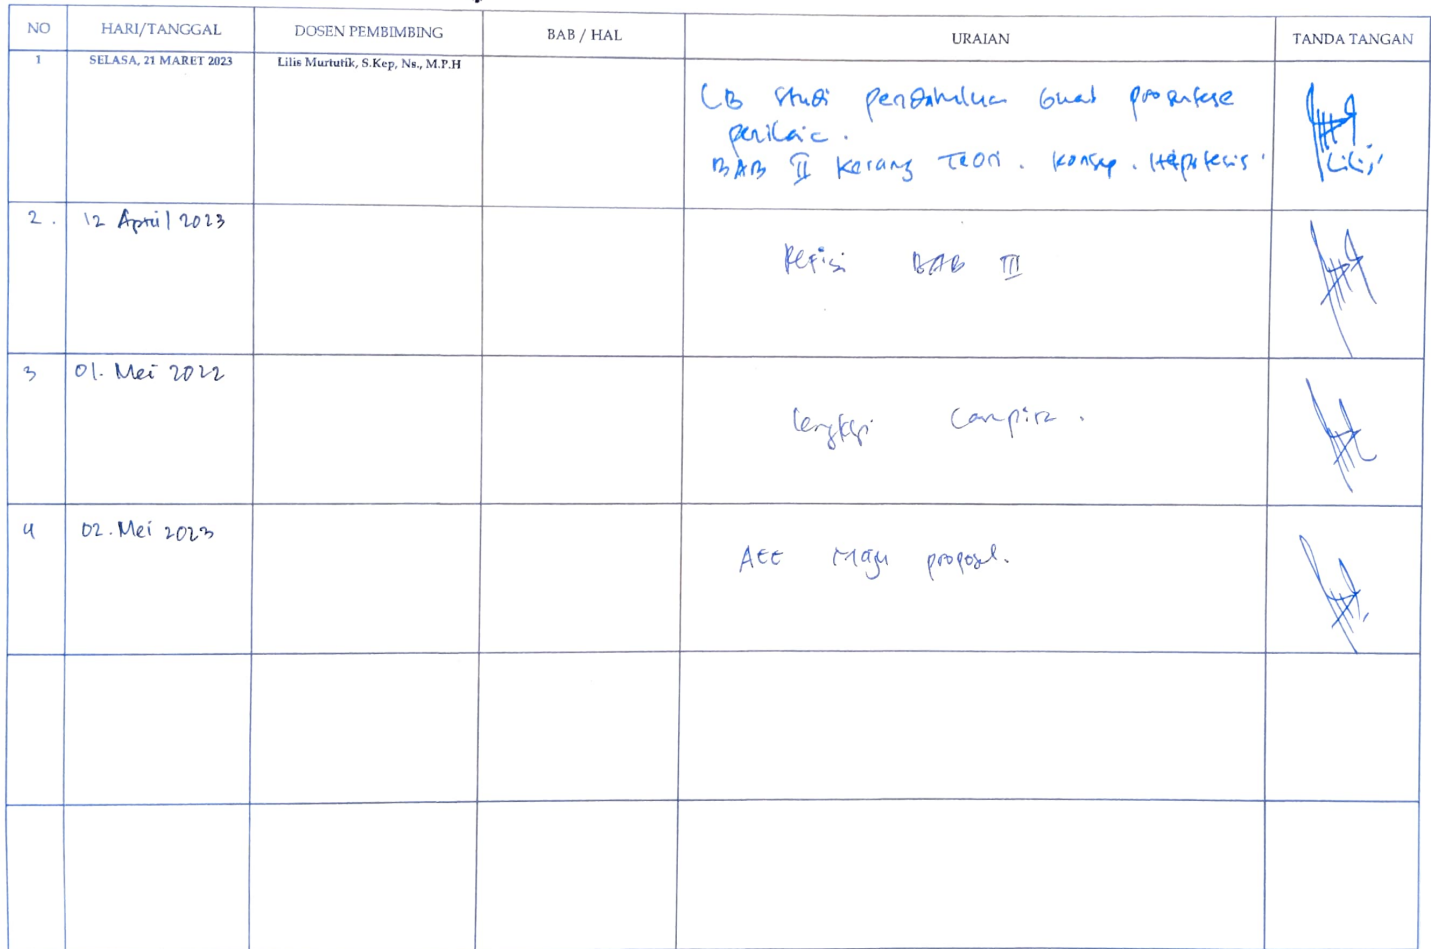 NO HARI/TANGGAL DOSEN PEMBIMBING BAB / HAL URAIAN TANDA TANGAN
1 SELASA, 21 MARET 2023 Lilis Murtutik, S.Kep, Ns., M.P.H
LB studi pendahuluan buat prosentase
perilaku.
BAB II Kerang Teori. Konsep. Hipotesis
Lilis
2. 12 April 2023
Refisi BAB III
3 01. Mei 2022
lengkapi lampiran.
4 02. Mei 2023
ACC Maju proposal.